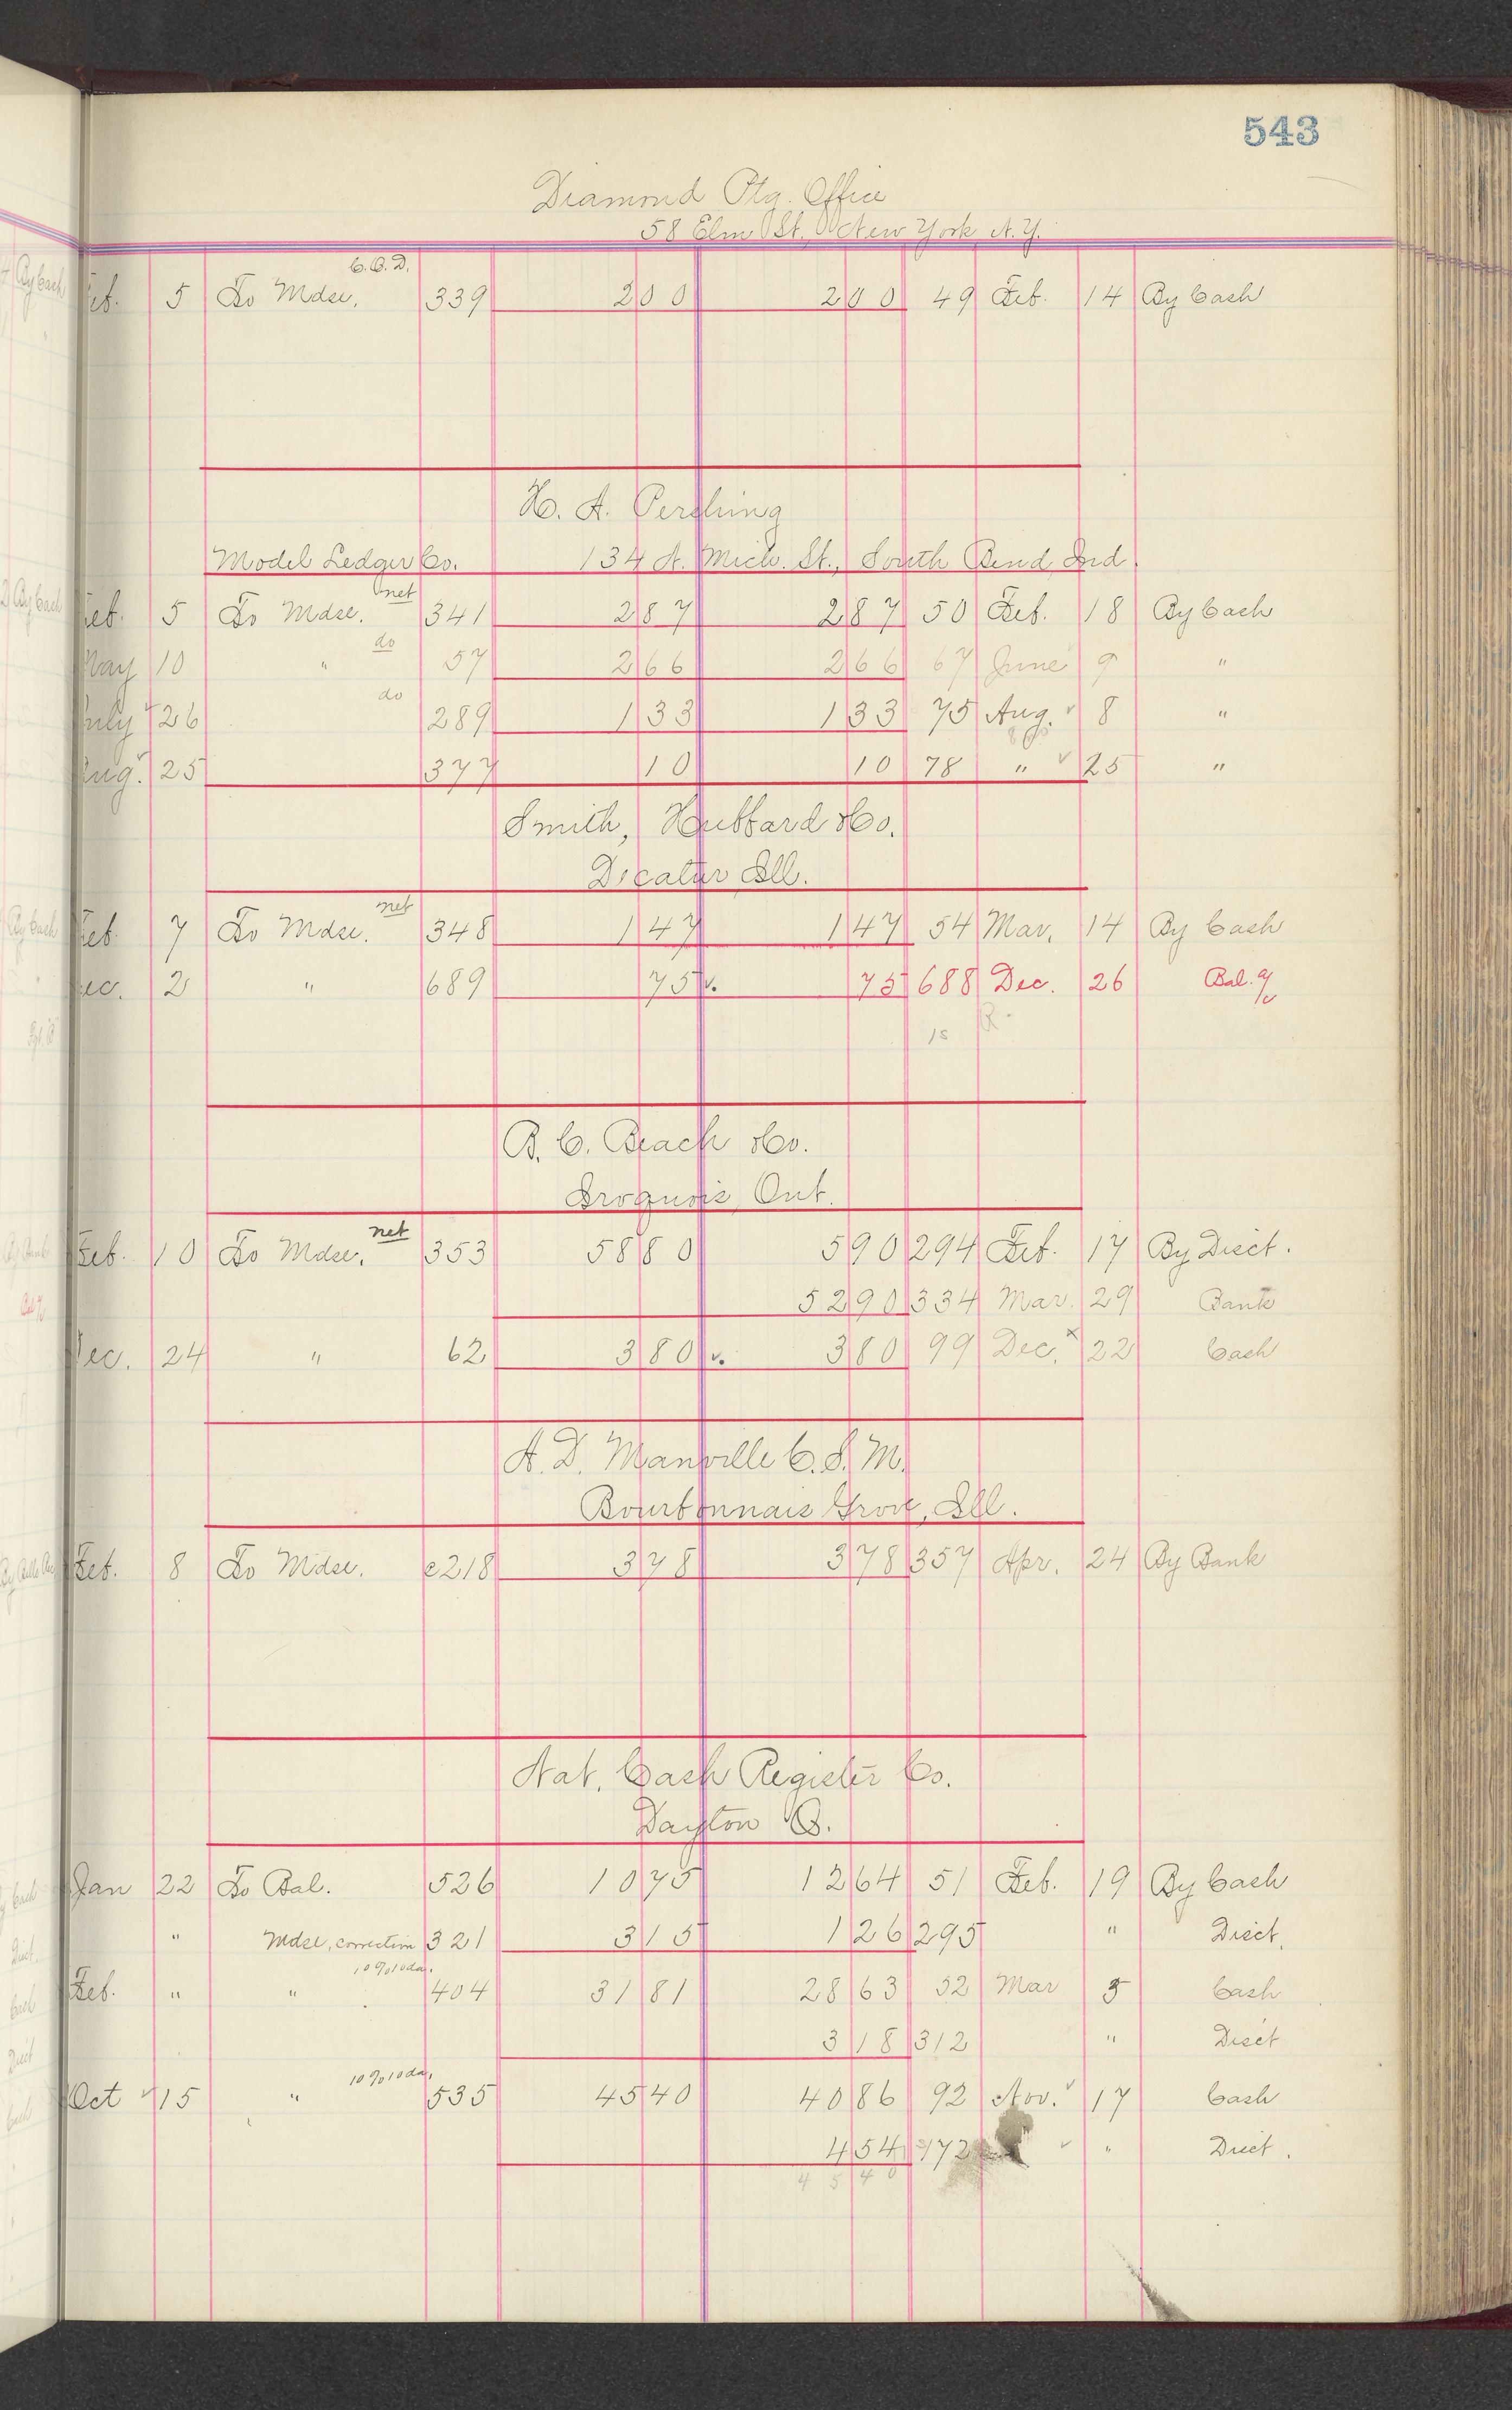 543
Diamond Ptg. Office
58 Elm St., New York N.Y.
C.O.D.
Feb. 5 To Mdse. 339 200 200 49 Feb. 14 By Cash
H. A. Pershing
Model Ledger Co. 134 N. Mich. St., South Bend Ind.
net
Feb. 5 To Mdse. 341 287 287 50 Feb. 18 By Cash
do
May 10 " 57 266 266 67 June 9 "
do
July 26 289 133 133 75 Aug. 8 "
Aug. 25 377 10 10 78 " 25 "
Smith, Hubbard & Co.
Decatur Ill.
net
Feb. 7 To Mdse. 348 147 147 54 Mar. 14 By Cash
Dec. 2 " 689 75 75 688 Dec. 26 Bal. a/c
15
B. C. Beach & Co.
Iroquois, Ont.
net
Feb. 10 To Mdse. 353 5880 590 294 Feb. 17 By Disct.
5290 334 Mar. 29 Bank
Dec. 24 " 62 380 380 99 Dec. 22 Cash
A. D. Manville C. S. M.
Bourbonnais Grove, Ill.
Feb. 8 To Mdse. c218 378 378 357 Apr. 24 By Bank
Nat. Cash Register Co.
Dayton O.
Jan 22 To Bal. 526 1075 1264 51 Feb. 19 By Cash
" Mdse. correction 321 315 126 295 " Disct.
10%10da.
Feb. " " 404 3181 2863 52 Mar 5 Cash
318 312 " Disct
10%10da.
Oct 15 " 535 4540 4086 92 Nov. 17 Cash
454 172 " Disct.
4540